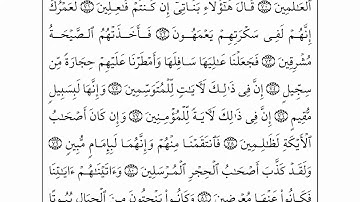 ٱلْعَٰلَمِينَ ۝ قَالَ هَٰٓؤُلَآءِ بَنَاتِىٓ إِن كُنتُمْ فَٰعِلِينَ ۝ لَعَمْرُكَ
إِنَّهُمْ لَفِى سَكْرَتِهِمْ يَعْمَهُونَ ۝ فَأَخَذَتْهُمُ ٱلصَّيْحَةُ
مُشْرِقِينَ ۝ فَجَعَلْنَا عَٰلِيَهَا سَافِلَهَا وَأَمْطَرْنَا عَلَيْهِمْ حِجَارَةً مِّن
سِجِّيلٍ ۝ إِنَّ فِى ذَٰلِكَ لَءَايَٰتٍ لِّلْمُتَوَسِّمِينَ ۝ وَإِنَّهَا لَبِسَبِيلٍ
مُّقِيمٍ ۝ إِنَّ فِى ذَٰلِكَ لَءَايَةً لِّلْمُؤْمِنِينَ ۝ وَإِن كَانَ أَصْحَٰبُ
ٱلْأَيْكَةِ لَظَٰلِمِينَ ۝ فَٱنتَقَمْنَا مِنْهُمْ وَإِنَّهُمَا لَبِإِمَامٍ مُّبِينٍ ۝
وَلَقَدْ كَذَّبَ أَصْحَٰبُ ٱلْحِجْرِ ٱلْمُرْسَلِينَ ۝ وَءَاتَيْنَٰهُمْ ءَايَٰتِنَا
فَكَانُوا۟ عَنْهَا مُعْرِضِينَ ۝ وَكَانُوا۟ يَنْحِتُونَ مِنَ ٱلْجِبَالِ بُيُوتًا